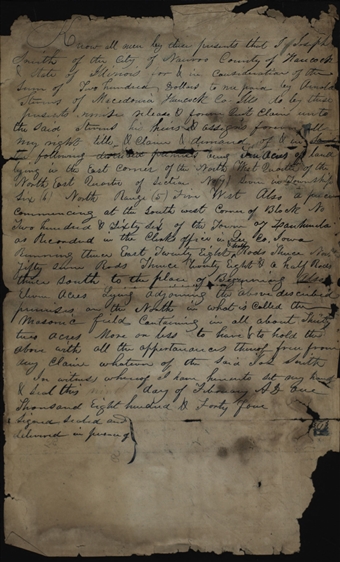 Know all men by these presents that I Joseph
Smith of the City of Nauvoo County of Hancock
& State of Illinois for & in Consideration of the
Sum of Two hundred Dollars to me paid by
of Macedonia Hancock Co Ills do by these
presents release & Quit Claim unto
the said heirs & assigns forever all
my right title & Claim & demand of & in
following being acres of land
lying in the East corner of the North West Quarter of the
North East Quarter of Section No in Township
Six (6) North Range (5) Five West Also a piece
commencing at the South west Corner of Block No
Two hundred & Sixty six of the Town of
as Recorded in the Clerks office in Co, Iowa
Running thence East Twenty Eight Rods Thence
Fifty Rods Thence Twenty Eight & a half Rods
thence South to the place of Beginning
Acres Lying adjoining the above described
premises on the North in what is Called the
Masonic field Containing in all about
two acres More or less to have & to hold the
above with all the appertainances thereof free from
any Claim whatever of the Said Smith
In witness whereof I have hereunto set my Hand
& Seal this day of February A.D. One
Thousand Eight hundred & Forty four
Signed Sealed and
delivered in presence